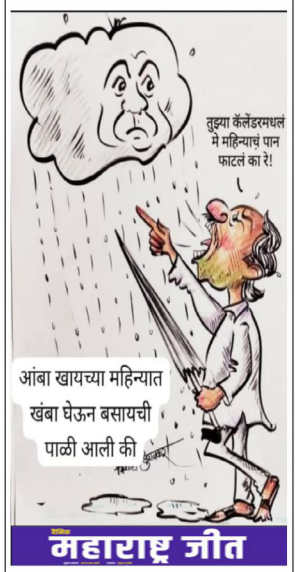 तुझ्या कॅलेंडरमधलं
मे महिन्याचं पान
फाटलं का रे!
आंबा खायच्या महिन्यात
खंबा घेऊन बसायची
पाळी आली की
दैनिक
महाराष्ट्र जीत